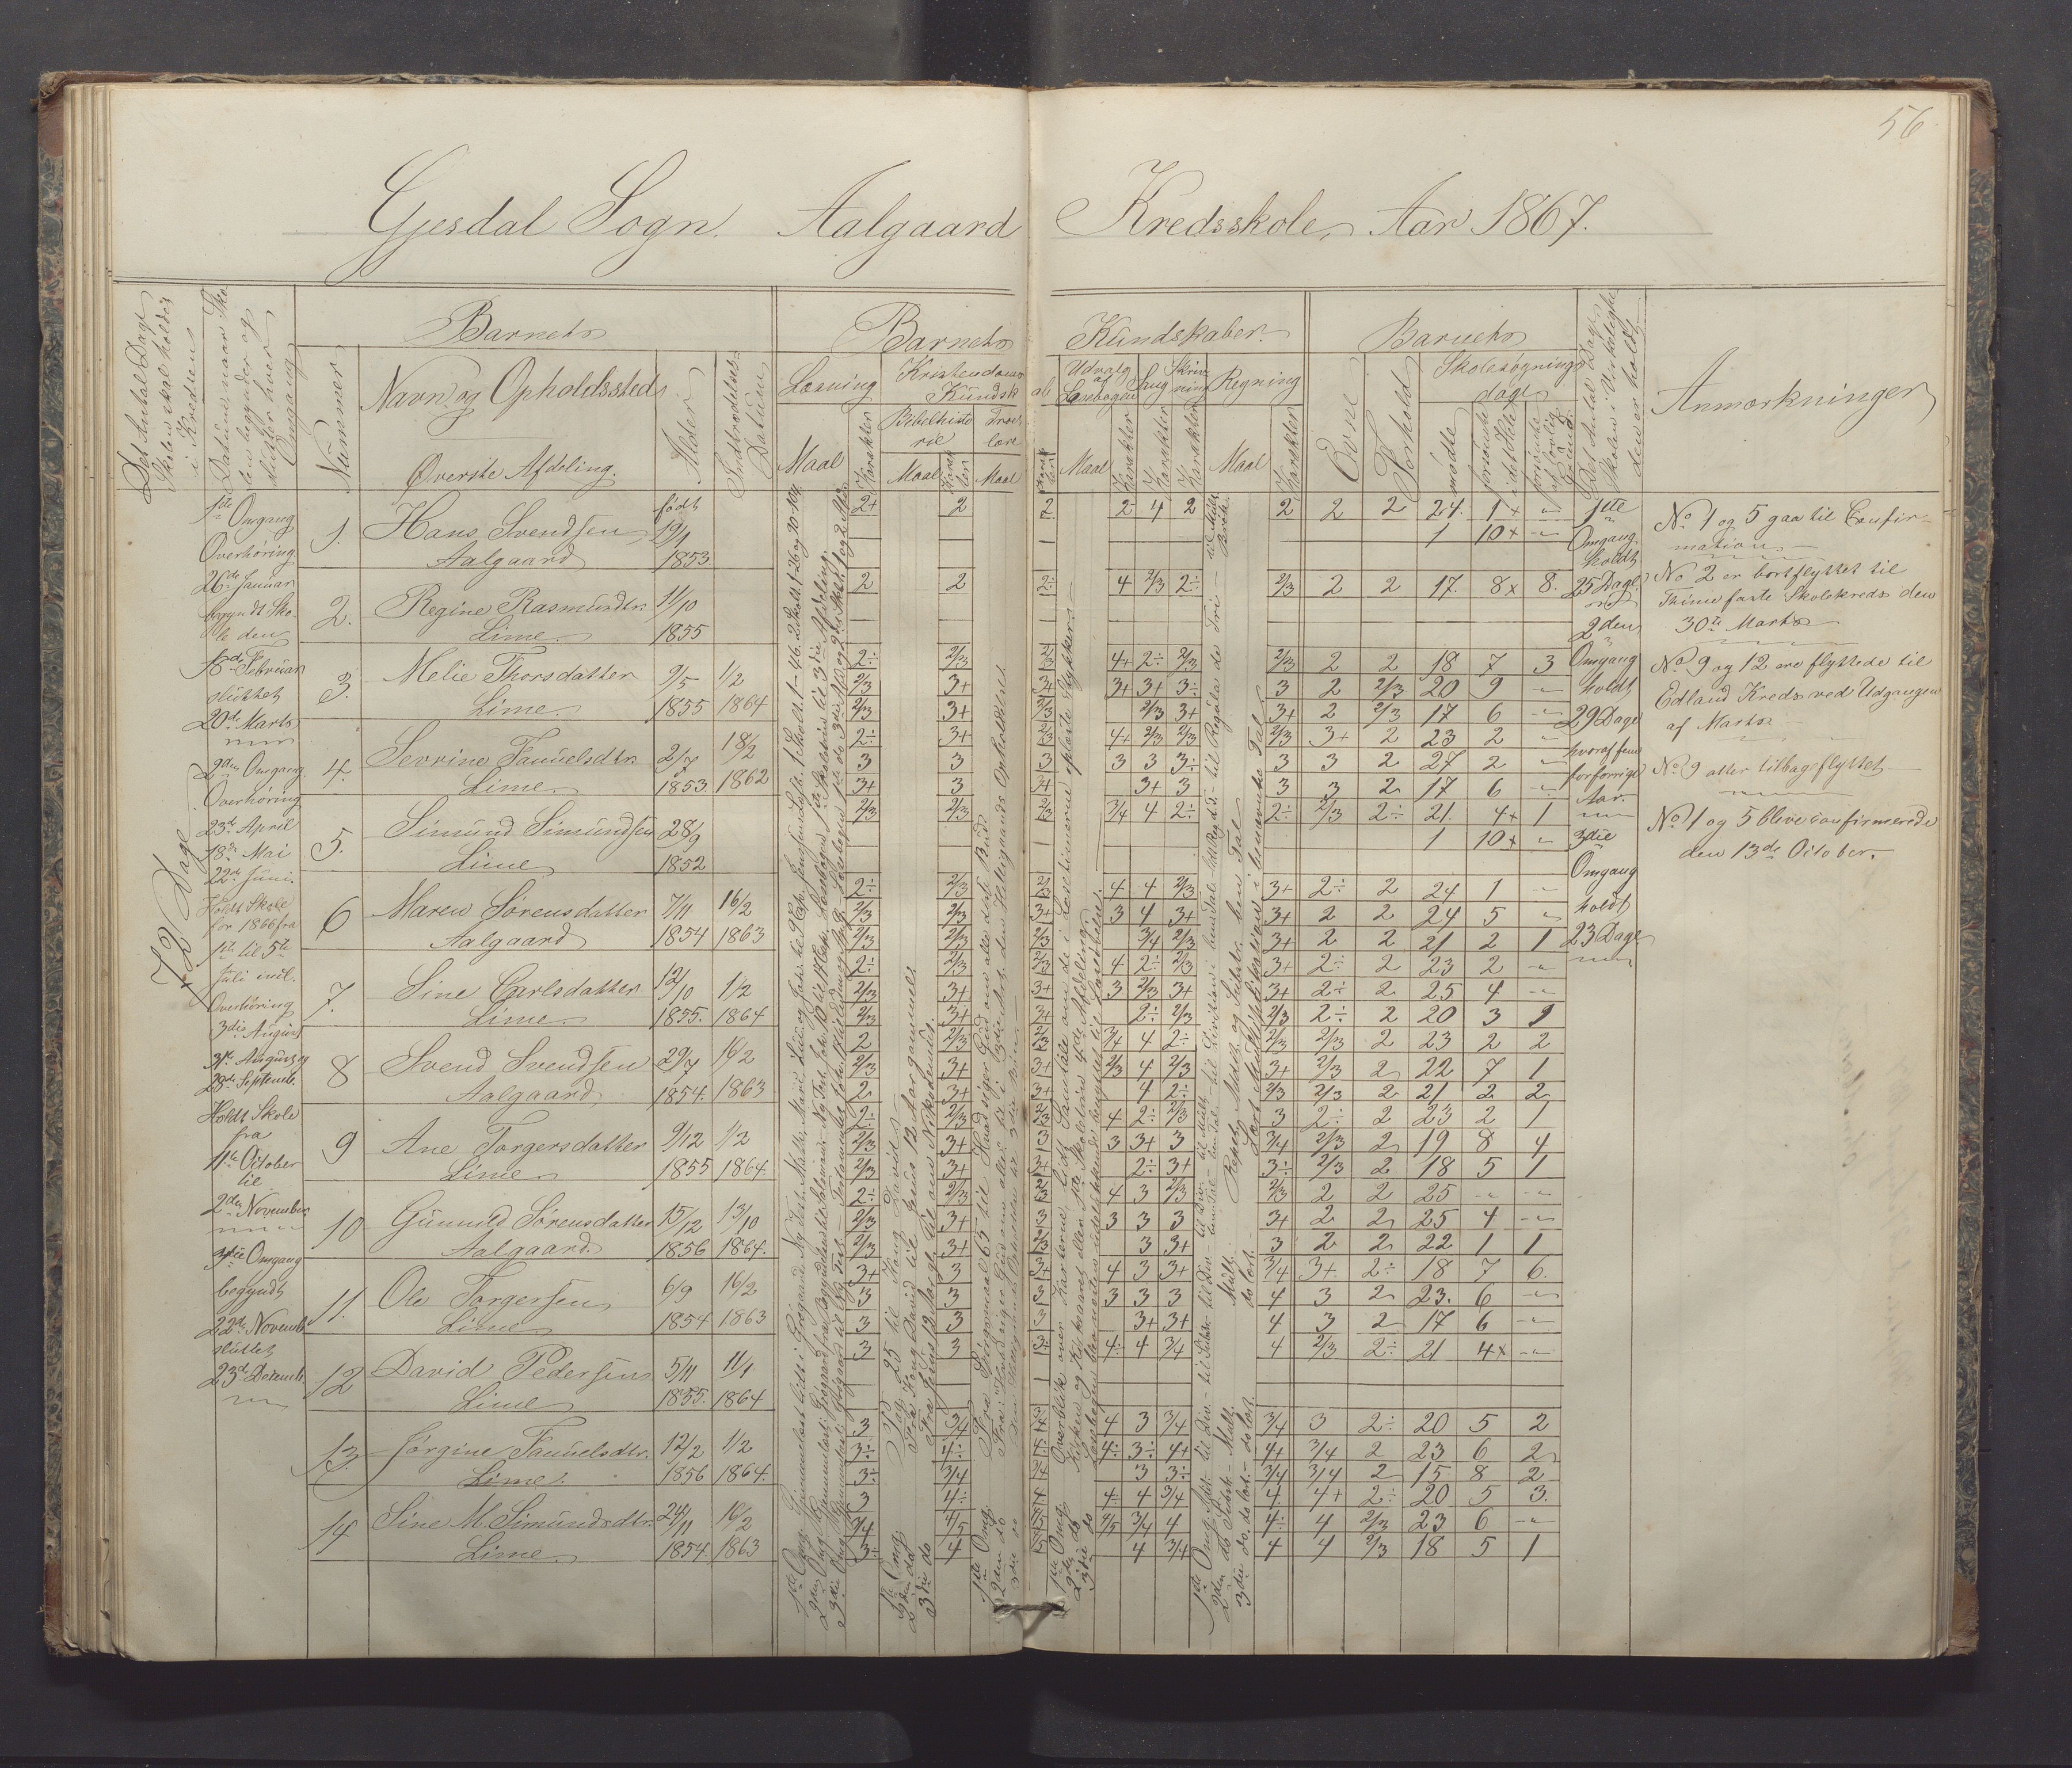 56.
Gjesdal Sogn. Aalgaard Kredsskole, Aar 1867.
Det Antal Dage
Skolen skal holdes
i Kredsen
Datum, naar Sko
len begynder og
slutter hver
Omgang
Barnets
Nummer
Navn og Opholdssted
Øverste Afdeling.
Alder
Indtrædelses
Datum
Barnets Kundskaber.
Læsning
Maal
Karakter
Kristendoms
Kundskab
Bibelhisto
rie
Troes
lære
Maal
Maal
Udvalg
af
Læsebogen
Maal
Karakter
Sang
Karakter
Skriv
ning
Karakter
Regning
Maal
Karakter
Barnets
Evne
Forhold
Skolesøgnings
dage
mødte
forsømte
i det Hele
forsømte
af lovlig
Grund.
Det Antal Dage
Skolen i Virkelighe
den er holdt
Anmærkninger
72 Dage
1ste Omgang
Overhøring
26de Januar
begyndt Sko-
le den
18de Februar
sluttet
20de Marts
2den Omgang
Overhøring
23de April
18de Mai
22de Juni.
Holdt Skole
for 1866 fra
1ste til 5te
Juli incl.
Overhøring
3die August
31te August og
28de Septemb.
Holdt Skole
fra
11te October
til
2den November
3die Omgang
begyndt
22de Novemb
sluttet
23de Decemb.
1. Hans Svendsen født 19/1
Aalgaard 1853.
2. Regine Rasmusdtr. 11/10
Lime. 1855
3. Melie Thorsdatter 9/5 1/2
Lime. 1855 1864
4. Sevrine Samuelsdtr. 2/7 18/2
Lime. 1853 1862
5. Simund Simundsen 28/9
Lime 1852
6 Maren Sørensdatter 7/11 16/2
Aalgaard 1854 1863
7. Sine Carlsdatter 12/10 1/2
Lime. 1855. 1864
8 Svend Svendsen 29/7 16/2
Aalgaard 1854. 1863
9 Ane Torgersdatter 9/12 1/2
Lime. 1855 1864.
10 Gunnild Sørensdatter 15/12 13/10
Aalgaard. 1856 1864.
11. Ole Torgersen 6/9 16/2
Lime. 1854 1863
12 David Pedersen 5/11 11/1
Lime 1855. 1864
13. Jørgine Samuelsdtr. 12/2 1/2
Lime. 1856 1864.
14 Sine M. Simundsdtr. 24/11 16/2
Lime. 1854 1863
2+ 2 2 2 4 2 2 2 2 24. 1+ "
1 10+ "
2 2 2÷ 4 2/3 2÷ 2/3 2 2 17. 8x 8.
2÷ 2/3 2/3 4+ 2÷ 2/3 2/3 2 2 18 7 3
2/3 3+ 3+ 3+ 3+ 3÷ 3 2 2/3 20 9 "
2/3 3+ 2/3 2/3 3+ 3+ 2 2/3 17 6 "
2÷ 3+ 2/3 4+ 2/3 2/3 2/3 3+ 2 23 2 "
3 3 3 3 3 3÷ 3 3 2 27 2 "
3+ 3 3+ 3+ 3 3 3 2 17 6 "
2/3 2/3 2/3 3/4 4 2÷ 2÷ 2/3 2÷ 21. 4+ 1
1 10+ "
2÷ 2/3 2/3 4 4 2/3 3+ 2÷ 2 24 1 "
2/3 2/3 3+ 3 4 3+ 3+ 2 2 24 5 "
2/3 2/3 2/3 3/4 2/3 3+ 2 2 21 2 1
2÷ 2/3 2/3 4 2÷ 2/3 3+ 2÷ 2 23 2 "
2/3 3+ 3+ 3 2/3 3+ 3+ 2÷ 2 25 4 "
2/3 3+ 3+ 2÷ 2/3 2/3 2÷ 2 20 3 1
2 2/3 2/3 3/4 4 2÷ 2/3 2/3 2 23 2 2
2/3 3+ 3+ 2/3 4 2/3 3+ 2/3 2 22 7 1
2 3+ 3+ 4 2÷ 2/3 2/3 2 21 2 2
2÷ 2/3 2/3 4 2÷ 2/3 3 2÷ 2 23 2 1
2/3 3+ 3 3 3+ 3 3/4 2/3 2 19 8 4
2/3 3+ 3+ 2÷ 3+ 3÷ 2/3 2 18 5 1
2÷ 2/3 2/3 4 3 2/3 2/3 2 2 25 " "
2/3 3+ 3 3 3 3 3+ 2 2 25 4 "
2/3 3+ 2/3 3 3+ 3 2 2 22 1 1
3+ 3 3+ 4 3 3+ 3/4 3+ 2÷ 18 7 6.
3 3 3 3 3 3 4 3 2 23. 6 "
3 3 3 3+ 3+ 4 3 2 17 6 "
3 3 3÷ 4÷ 4 3/4 4 2/3 2÷ 21 4x "
3 3/4 3/4 4 3 3/4 3/4 3 2÷ 20 5 2
3÷ 4÷ 4÷ 4÷ 3÷ 4+ 4+ 3/4 2 23 6 2
3÷ 3/4 3/4 3 3÷ 3/4 3/4 2 15 8 2
3 4÷ 4 4÷ 4 3/4 4 4+ 2÷ 20 5 3.
3/4 4/5 4/5 4/5 3/4 4 4÷ 4 2/3 23 6 "
3÷ 4 4 3/4 4 4 2/3 18 5 1
1ste
Omgang
holdt
25 Dage
2den
Omgang
holdt
29 Dage
hvoraf fem
for forrige
Aar.
3die
Omgang
holdt
23 Dage
No 1 og 5 gaa til Confir-
mation
No 2 er bortflyttet til
Thime faste Skolekreds den
30te Marts
No 9 og 12 ere flyttede til
Edland Kreds ved Udgangen
af Marts.
No 9 atter tilbageflyttet
No 1 og 5 bleve confirmerede
den 13de October.